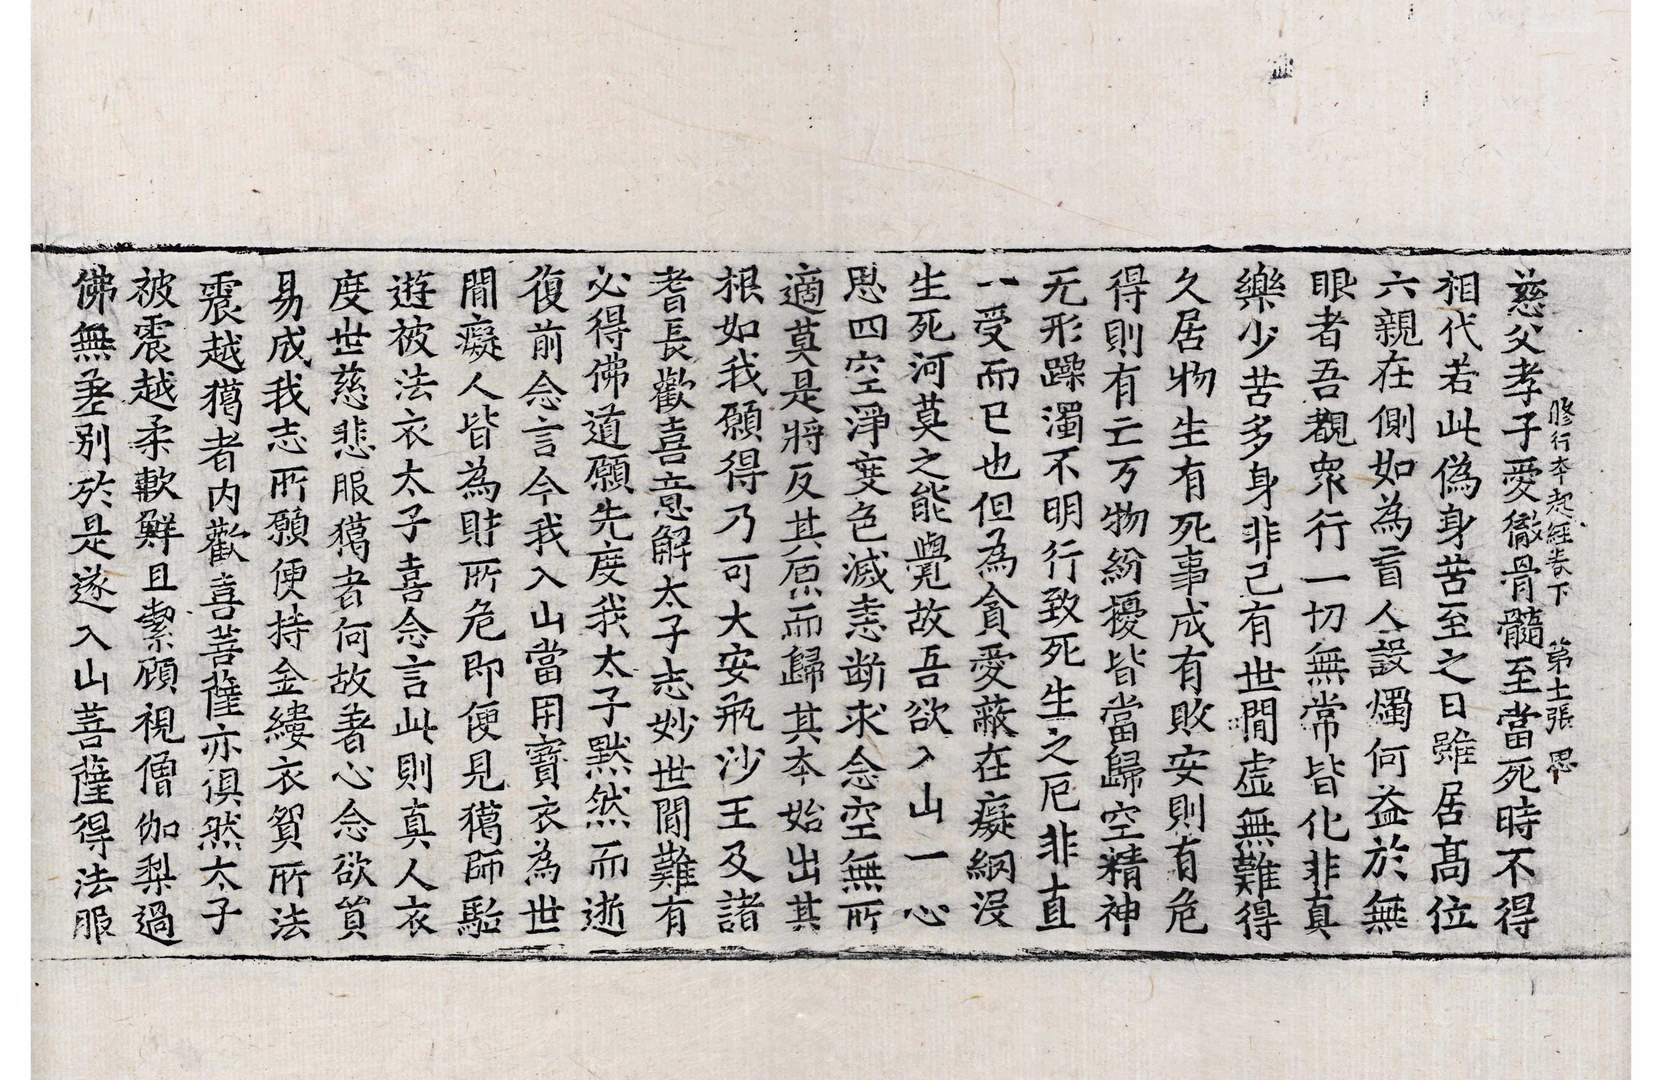 修行本起經卷下　第十張　思
慈父孝子愛徹骨髓至當死時不得
相代若此偽身苦至之日雖居髙位
六親在側如為盲人設燭何益於無
眼者吾觀衆行一切無常皆化非真
樂少苦多身非己有世間虛無難得
久居物生有死事成有敗安則有危
得則有亡万物紛擾皆當歸空精神
无形躁濁不明行致死生之厄非直
一受而已也但為貪愛蔽在癡網沒
生死河莫之能覺故吾欲入山一心
思四空淨度色滅恚断求念空無所
適莫是將反其原而歸其本始出其
根如我願得乃可大安瓶沙王及諸
耆長歡喜意解太子志妙世間難有
必得佛道願先度我太子默然而逝
復前念言今我入山當用寶衣為世
間癡人皆為財所危即便見獦師駈
遊被法衣太子喜念言此則真人衣
度世慈悲服獦者何故著心念欲貿
易成我志所願便持金縷衣貿所法
震越獦者内歡喜菩薩亦俱然太子
被震越柔軟鮮且潔顧視僧伽梨過
佛無差别於是遂入山菩薩得法服